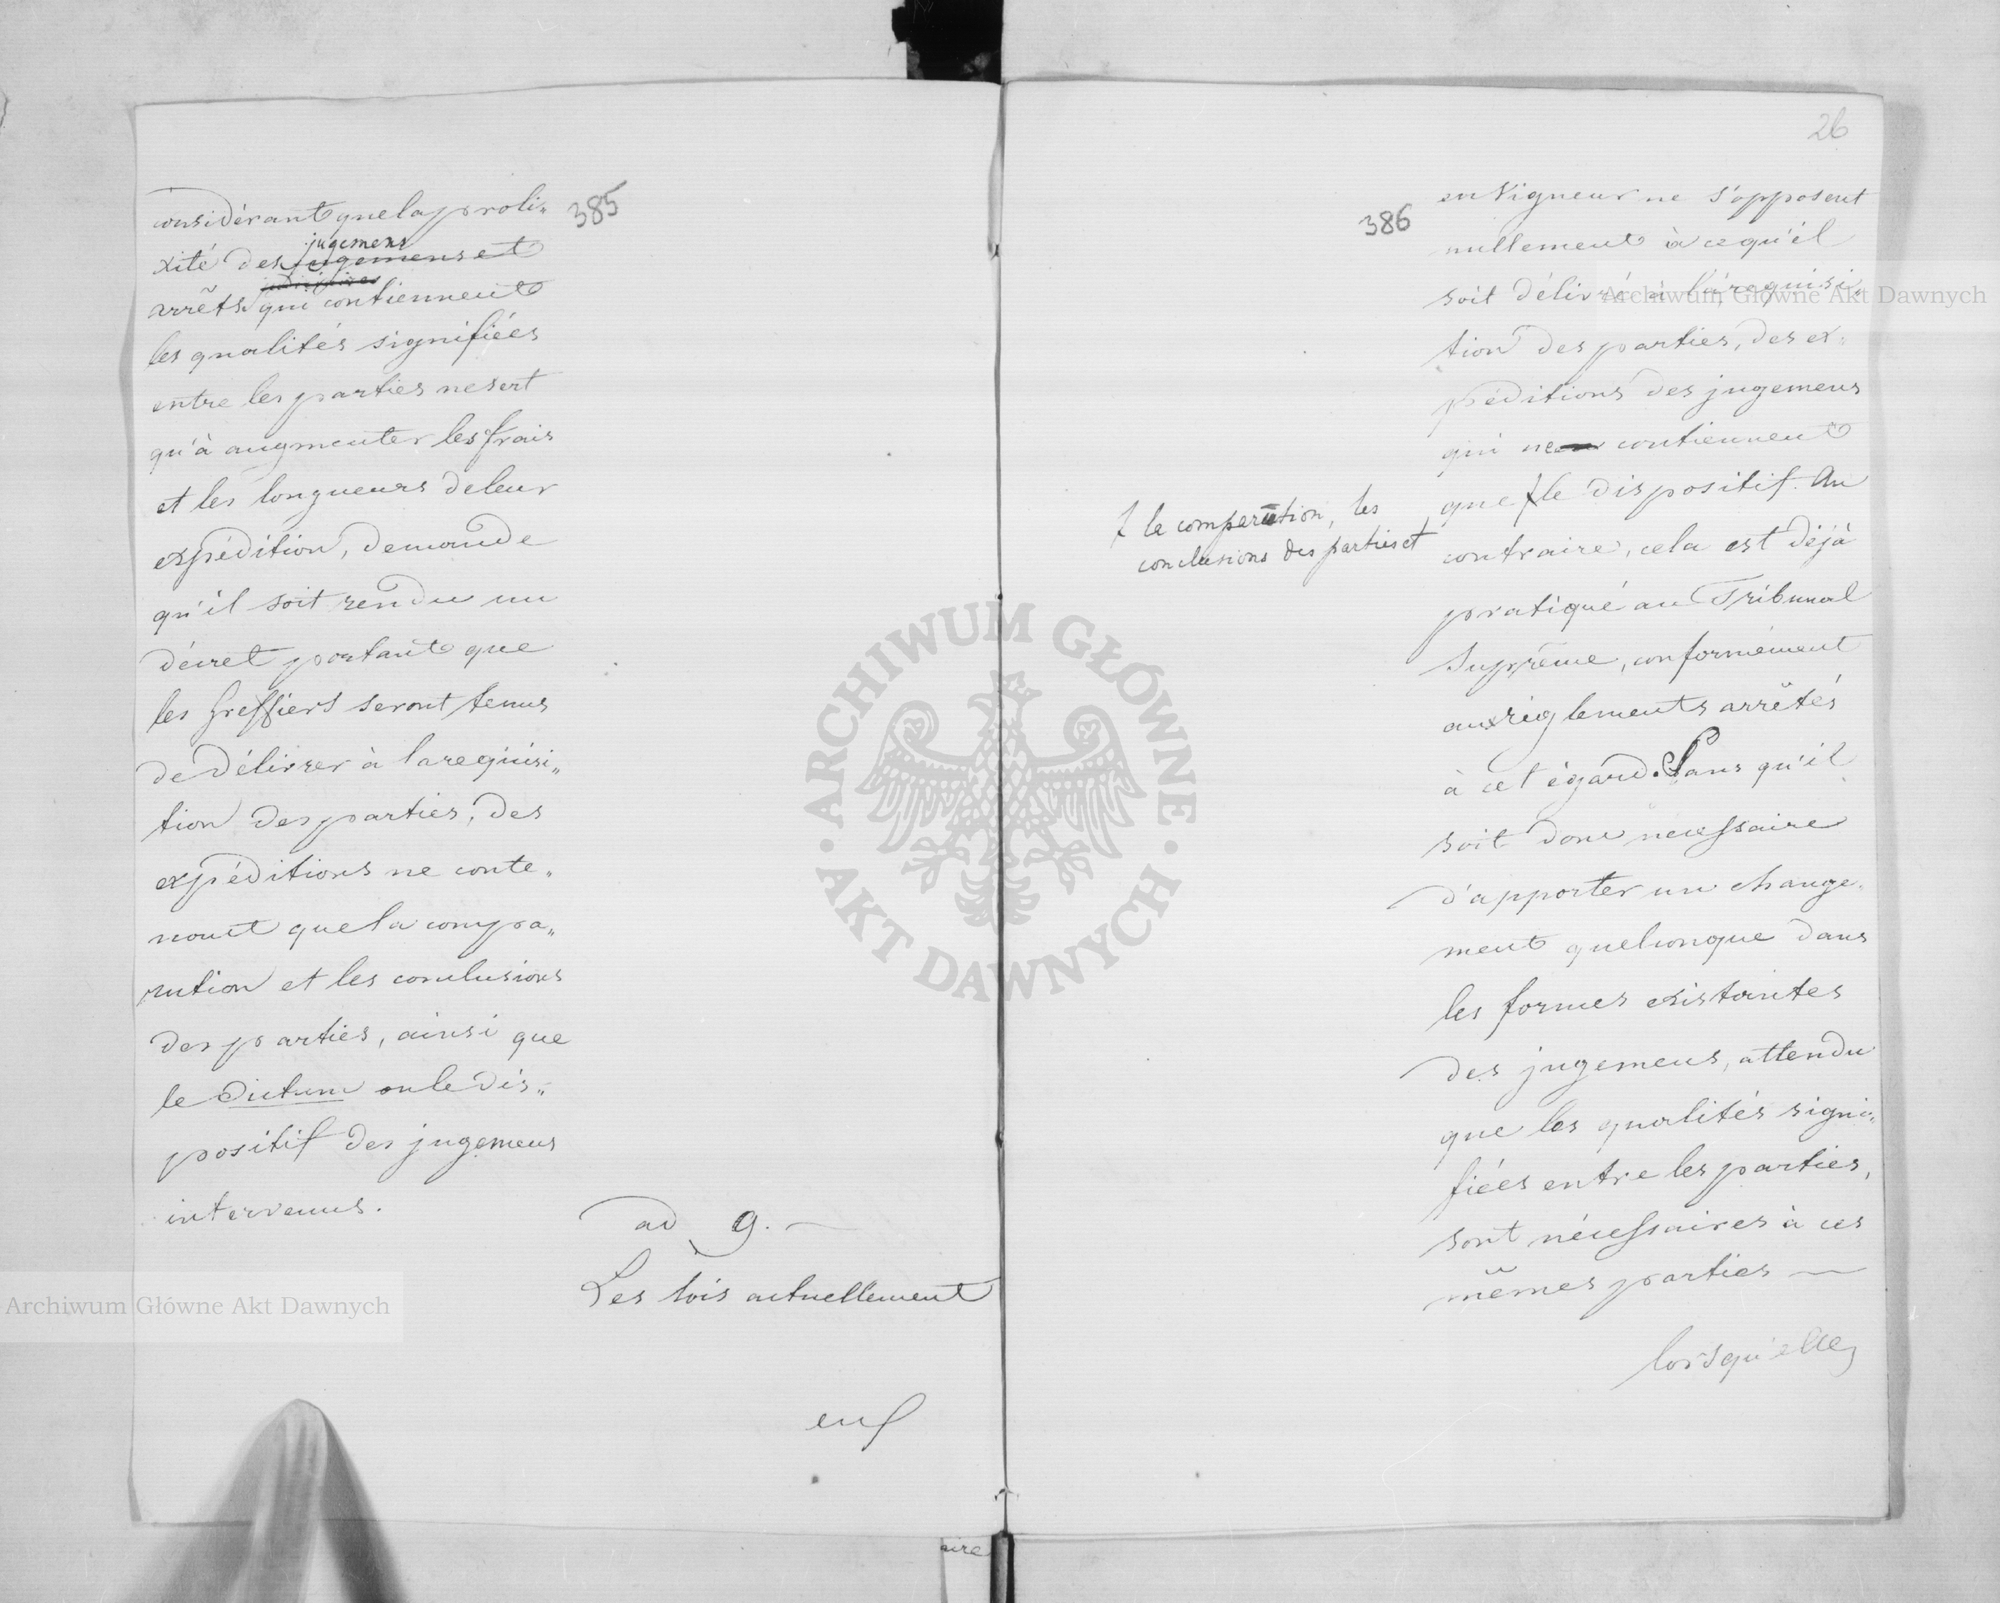 385
considérant que la proli„
jugemens
xité des jugemens et
judiciaires
arrêts qui contiennent
les qualités signifiées
entre les parties ne sert
qu'à augmenter les frais
et les longueurs de leur
expédition, demande
qu'il soit rendu un
décret portant que
les Greffiers seront tenus
de délivrer à la réquisi„
tion des parties, des
expéditions ne conte„
nant que la compa„
rution et les conclusions
des parties, ainsi que
le dictum ou le dis„
positif des jugemens
intervenus.
ad 9.
Les lois actuellement
en
26
386
en vigueur ne s'opposent
nullement à ce qu'il
soit délivré à la réquisi„
tion des parties, des ex„
péditions des jugemens
qui ne contiennent
que le dispositif. Au
le comparution, les
conclusions des parties et
contraire, cela est déjà
pratiqué au Tribunal
Suprême, conformément
aux réglements arrêtés
à cet égard. Sans qu'il
soit donc nécessaire
d'apporter un change„
ment quelconque dans
les formes existantes
des jugemens, attendu
que les qualités signi„
fiées entre les parties,
sont nécessaires à ces
mêmes parties
lorsqu'elles
aire
Archiwum Główne Akt Dawnych
Archiwum Główne Akt Dawnych
ARCHIWUM GŁÓWNE
AKT DAWNYCH